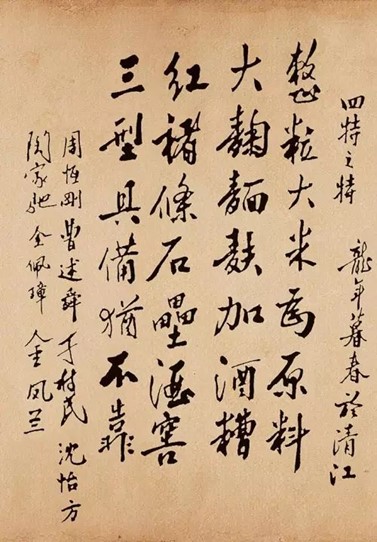 四特之特 龍年暮春於清江
整粒大米為原料
大麯麵麩加酒糟
紅褚條石壘酒窖
三型具備猶不靠
周恆剛 曹述舜 于樹民 沈怡方
陶家馳 金佩璋 金凤兰